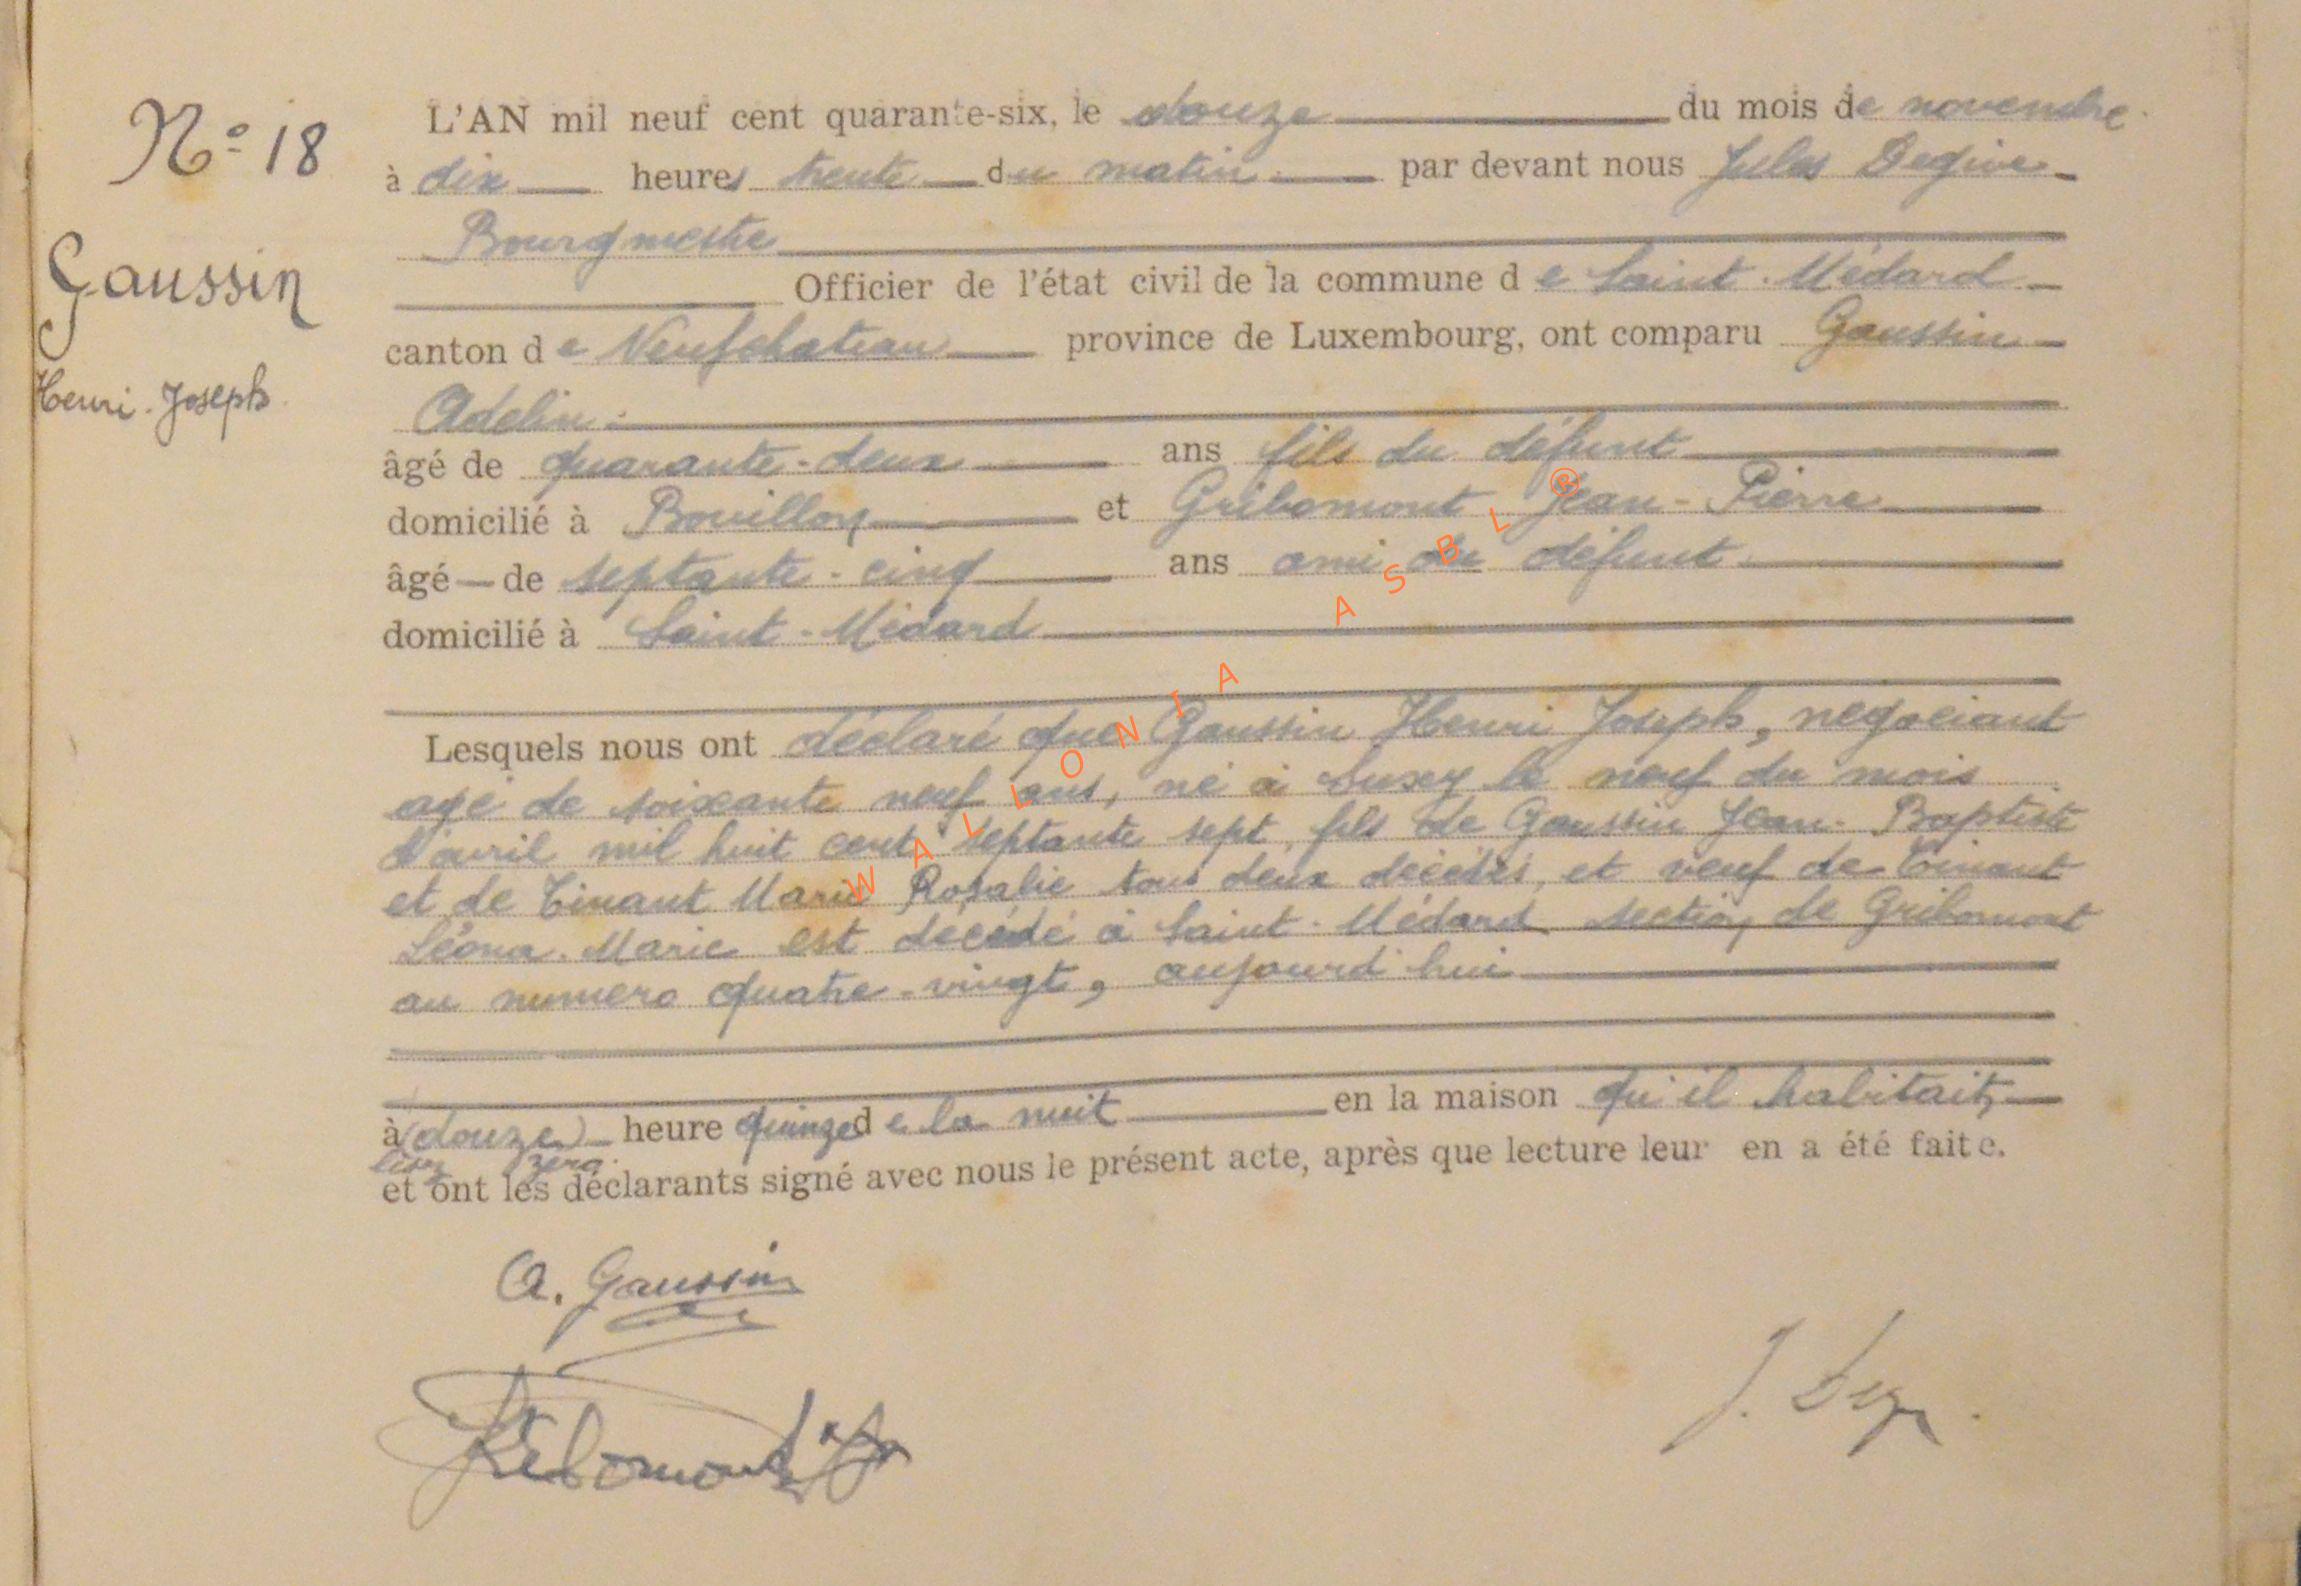 N° 18
Gaussin
Henri-Joseph
L'AN mil neuf cent quarante-six, le douze du mois de novembre
à dix heures trente du matin par devant nous Jules
Bourgmestre
Officier de l'état civil de la commune de Saint-Médard
canton de Neufchateau province de Luxembourg, ont comparu Gaussin
Adelin
âgé de quarante-deux ans fils du défunt
domicilié à Bouillon et Gribomont Jean-Pierre
âgé de septante-cinq ans ami du défunt
domicilié à Saint-Médard
Lesquels nous ont déclaré que Gaussin Henri Joseph, négociant
agé de soixante neuf ans, né à Suxy le neuf du mois
d'avril mil huit cent septante sept, fils de Gaussin Jean-Baptiste
et de Tinant Marie Rosalie tous deux décédés, et veuf de Tinant
Léona-Marie est décédé à Saint-Médard section de Gribomont
au numero quatre-vingt, aujourd'hui
à (douze) heure quinze de la nuit en la maison qu'il habitait,
lisez zéro
et ont les déclarants signé avec nous le présent acte, après que lecture leur en a été faite.
A. Gaussin
Gribomont
J.
WALLONIA ASBL ®